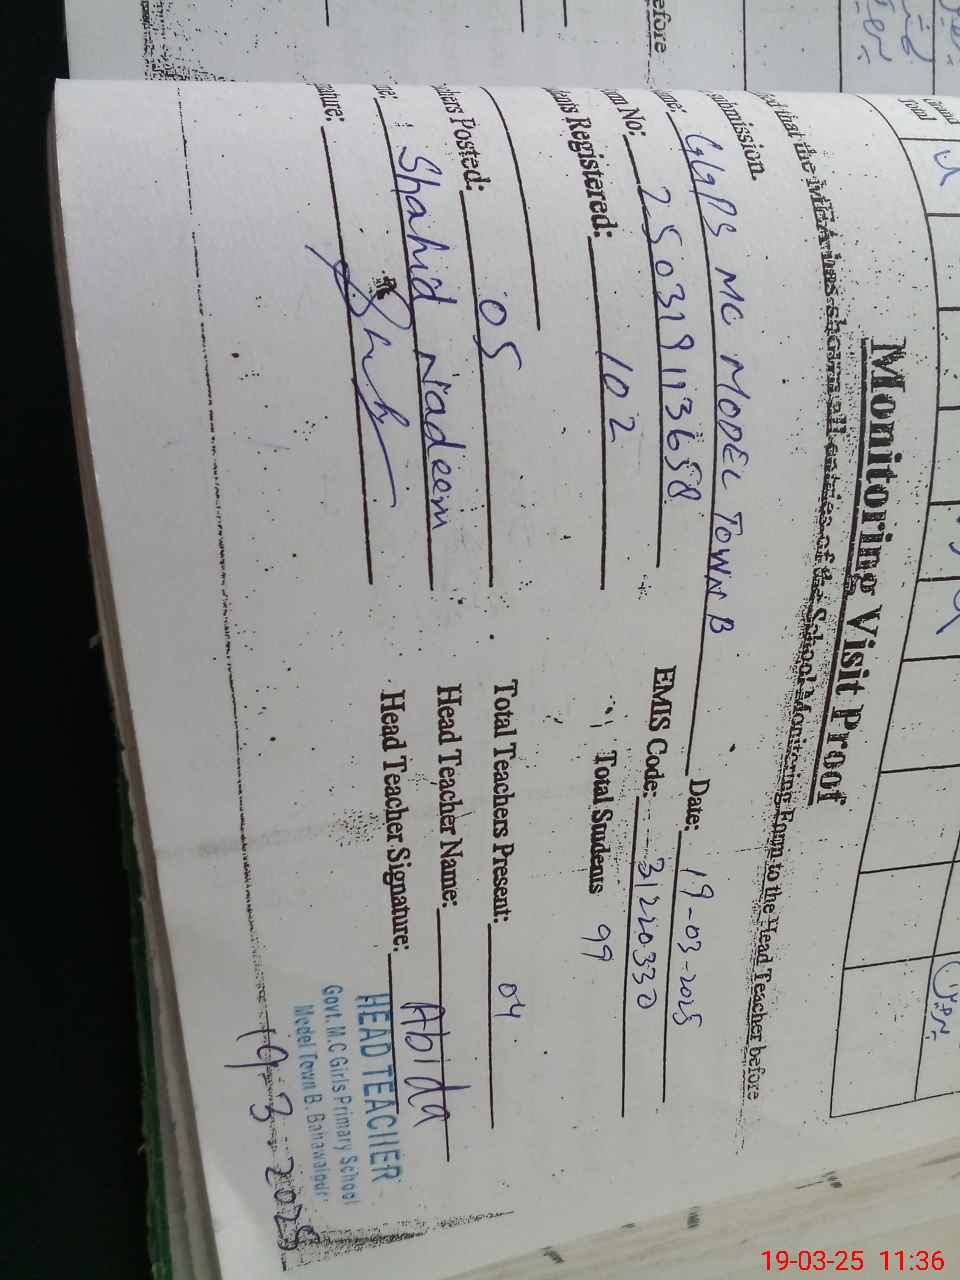 Monitoring Visit Proof
that the MEA has shown all entries of the School Monitoring Form to the Head Teacher before
submission.
GGPS MC MODEL TOWN B Date: 19-03-2025
No: 250319113658 EMIS Code: 31220330
Registered: 102 Total Students 99
Posted: 05 Total Teachers Present: 04
Shahid Nadeem Head Teacher Name: Abida
Head Teacher Signature:
HEAD TEACHER
Govt. M.C Girls Primary School
Model Town B. Bahawalpur
19-3-2025
Total
efore
19-03-25 11:36